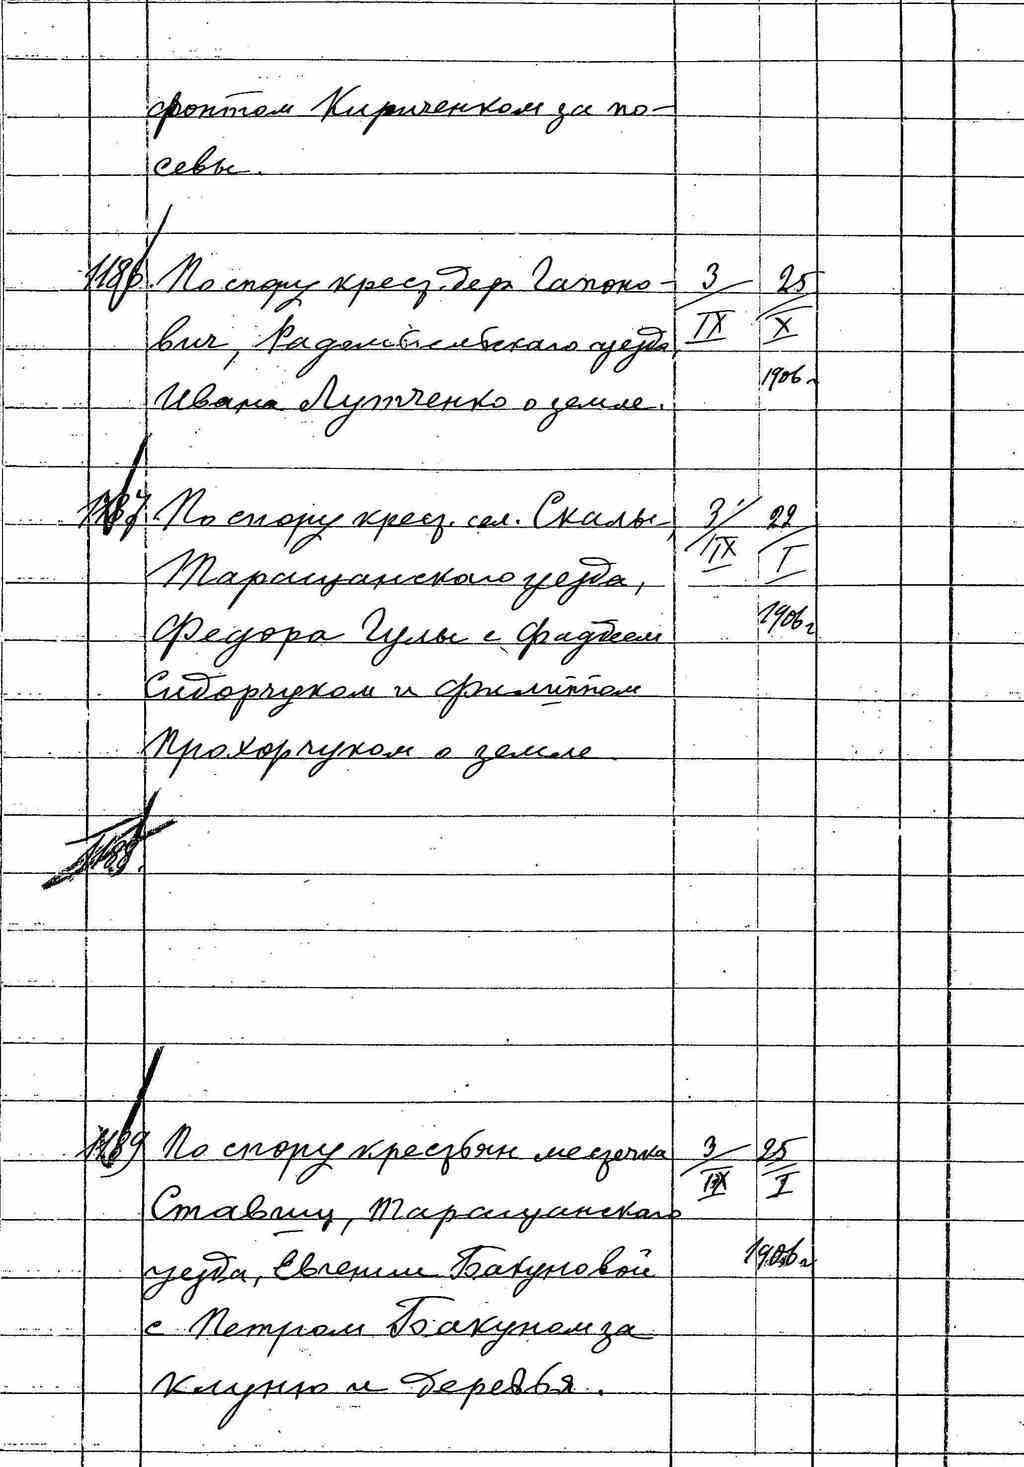 фонтом Кириченком за по-
севы.
1186. По спору крест. дер. Гапоно- 3/IX 25/X
вич, Радомысльского уезда, 1906 г.
Ивана Лутченко о земле.
1187. По спору крест. сел. Скалы, 3/IX 22/I
Таращанского уезда,
Федора Гулы с Фадеем 1906 г
Сидорчуком и Филиппом
Прохорчуком о земле
1188.
1189 По спору крестьян местечка 3/IX 25/I
Ставищ, Таращанского
уезда, Евгении Бакуновой 1906 г
с Петром Бакуном за
клуню и деревья.